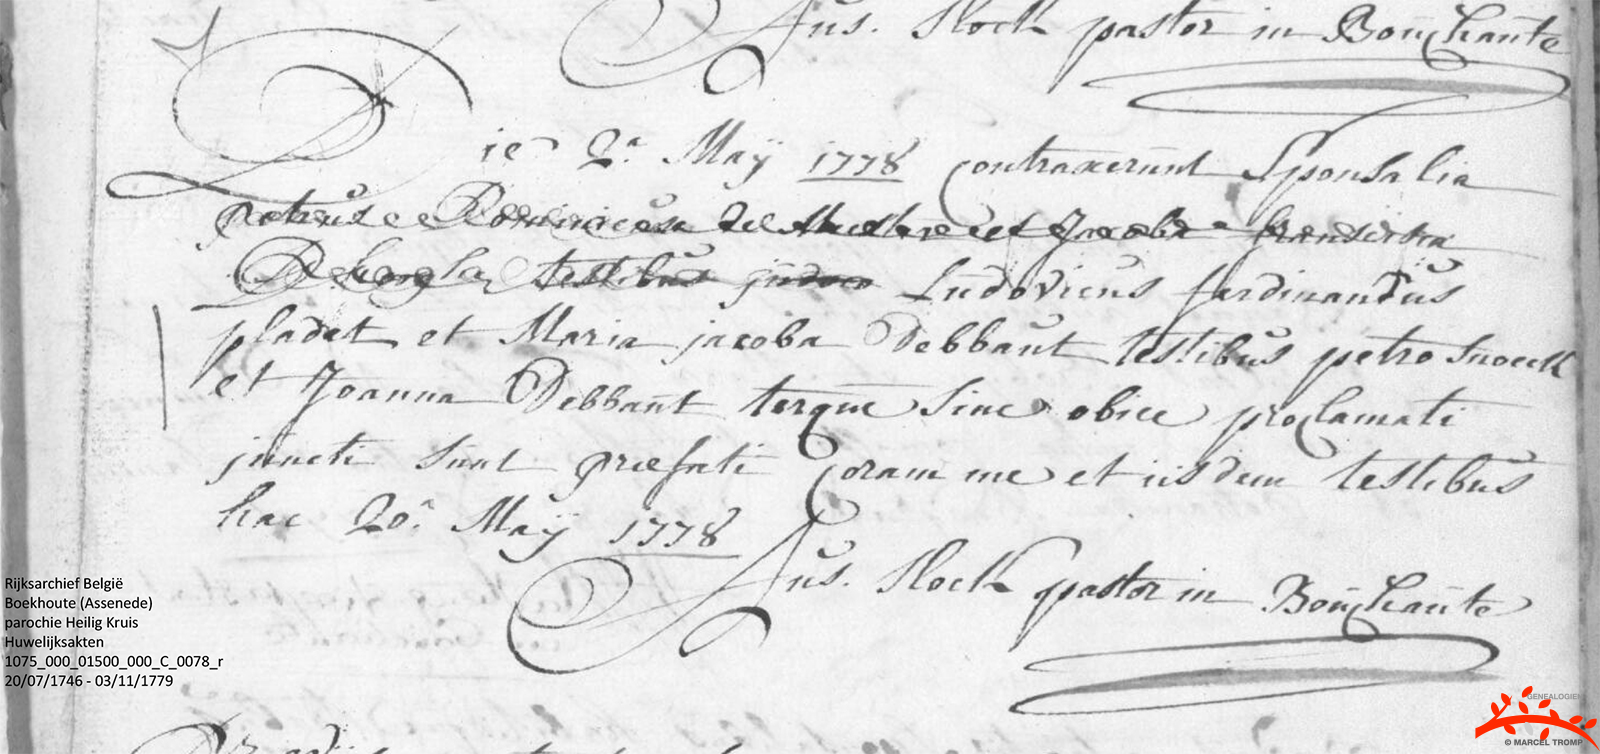 Jus. Stock pastor in Bouchaute
Die 2.a Maÿ 1778 contraxerunt Sponsalia
petrus Dominicus De et Jacoba
testibus judoco Ludovicus ferdinandus
pladet et Maria jacoba Debbaut testibus petro Snoeck
et Joanna Debbaut terque Sine obice proclamati
juncti sunt præfati Coram me et iisdem testibus
hac 20.a Maÿ 1778
Jus. Stock pastor in Bouchaute
Rijksarchief België
Boekhoute (Assenede)
parochie Heilig Kruis
Huwelijksakten
1075_000_01500_000_C_0078_r
20/07/1746 - 03/11/1779
GENEALOGIE
© MARCEL TROMP